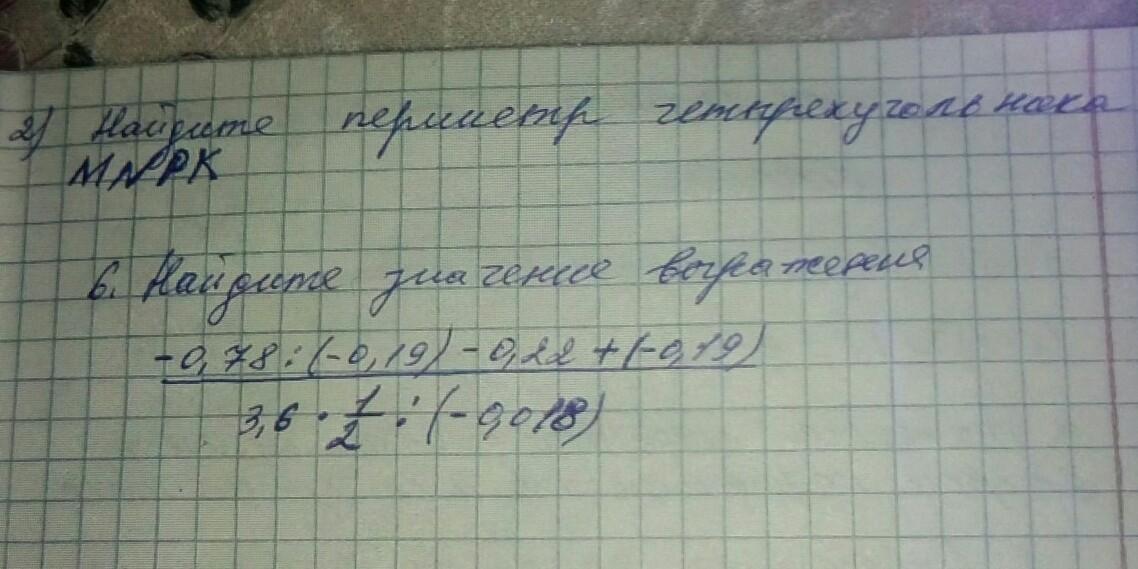 2) Найдите периметр четырехугольника
MNPK
6. Найдите значение выражения
-0,78:(-0,19)-0,22+(-0,19)
3,6·1/2:(-0,018)